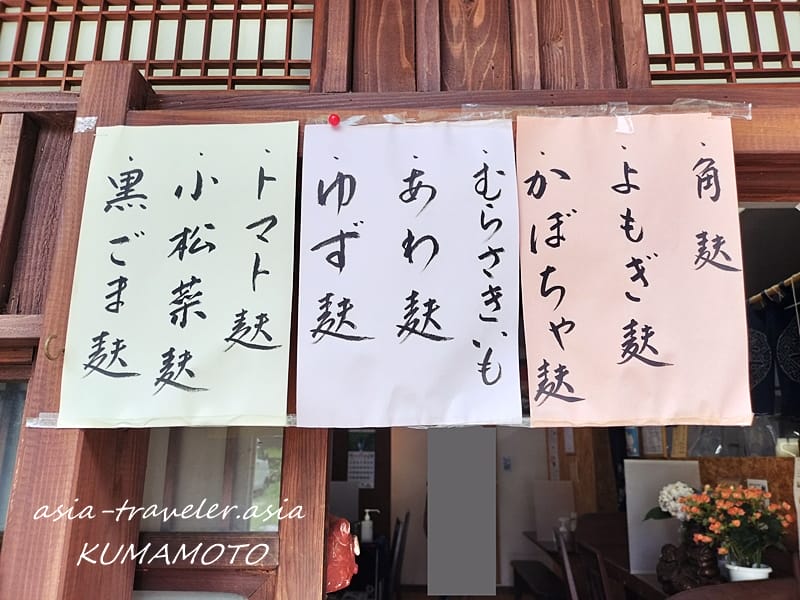 ・角麸
・よもぎ麸
・かぼちゃ麸
・むらさきいも
・あわ麸
・ゆず麸
・トマト麸
・小松菜麸
・黒ごま麸
asia-traveler.asia
KUMAMOTO